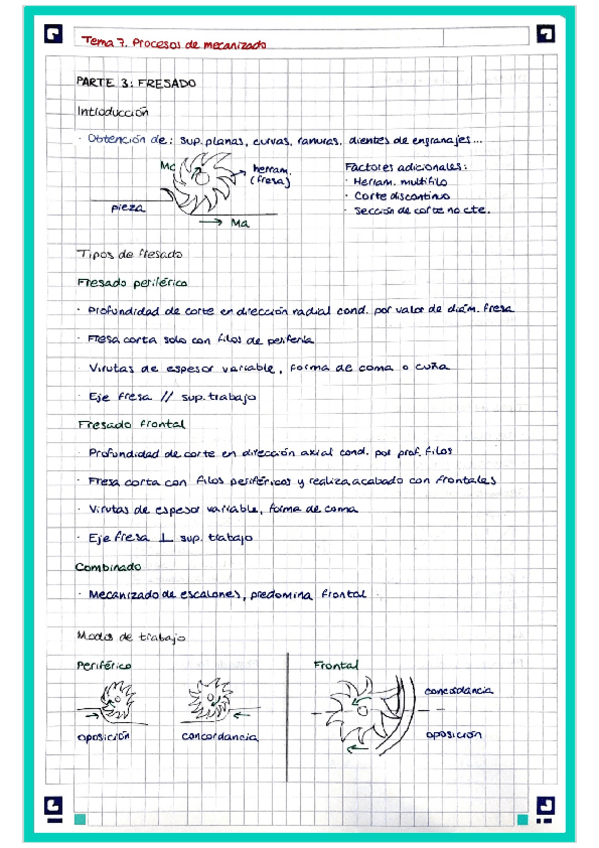 Tema 7. Procesos de mecanizado
PARTE 3: FRESADO
Introducción
· Obtención de: sup. planas, curvas, ranuras, dientes de engranajes...
Mc
herram.
(fresa)
pieza
Ma
Factores adicionales:
· Herram. multifilo
· Corte discontinuo
· Sección de corte no cte.
Tipos de fresado
Fresado periférico
· Profundidad de corte en dirección radial cond. por valor de diám. fresa
· Fresa corta solo con filos de periferia
· Virutas de espesor variable, forma de coma o cuña
· Eje fresa // sup. trabajo
Fresado frontal
· Profundidad de corte en dirección axial cond. por prof. filos
· Fresa corta con filos periféricos y realiza acabado con frontales
· Virutas de espesor variable, forma de coma
· Eje fresa ⊥ sup. trabajo
Combinado
· Mecanizado de escalones, predomina frontal
Modos de trabajo
Periférico
oposición
concordancia
Frontal
concordancia
oposición